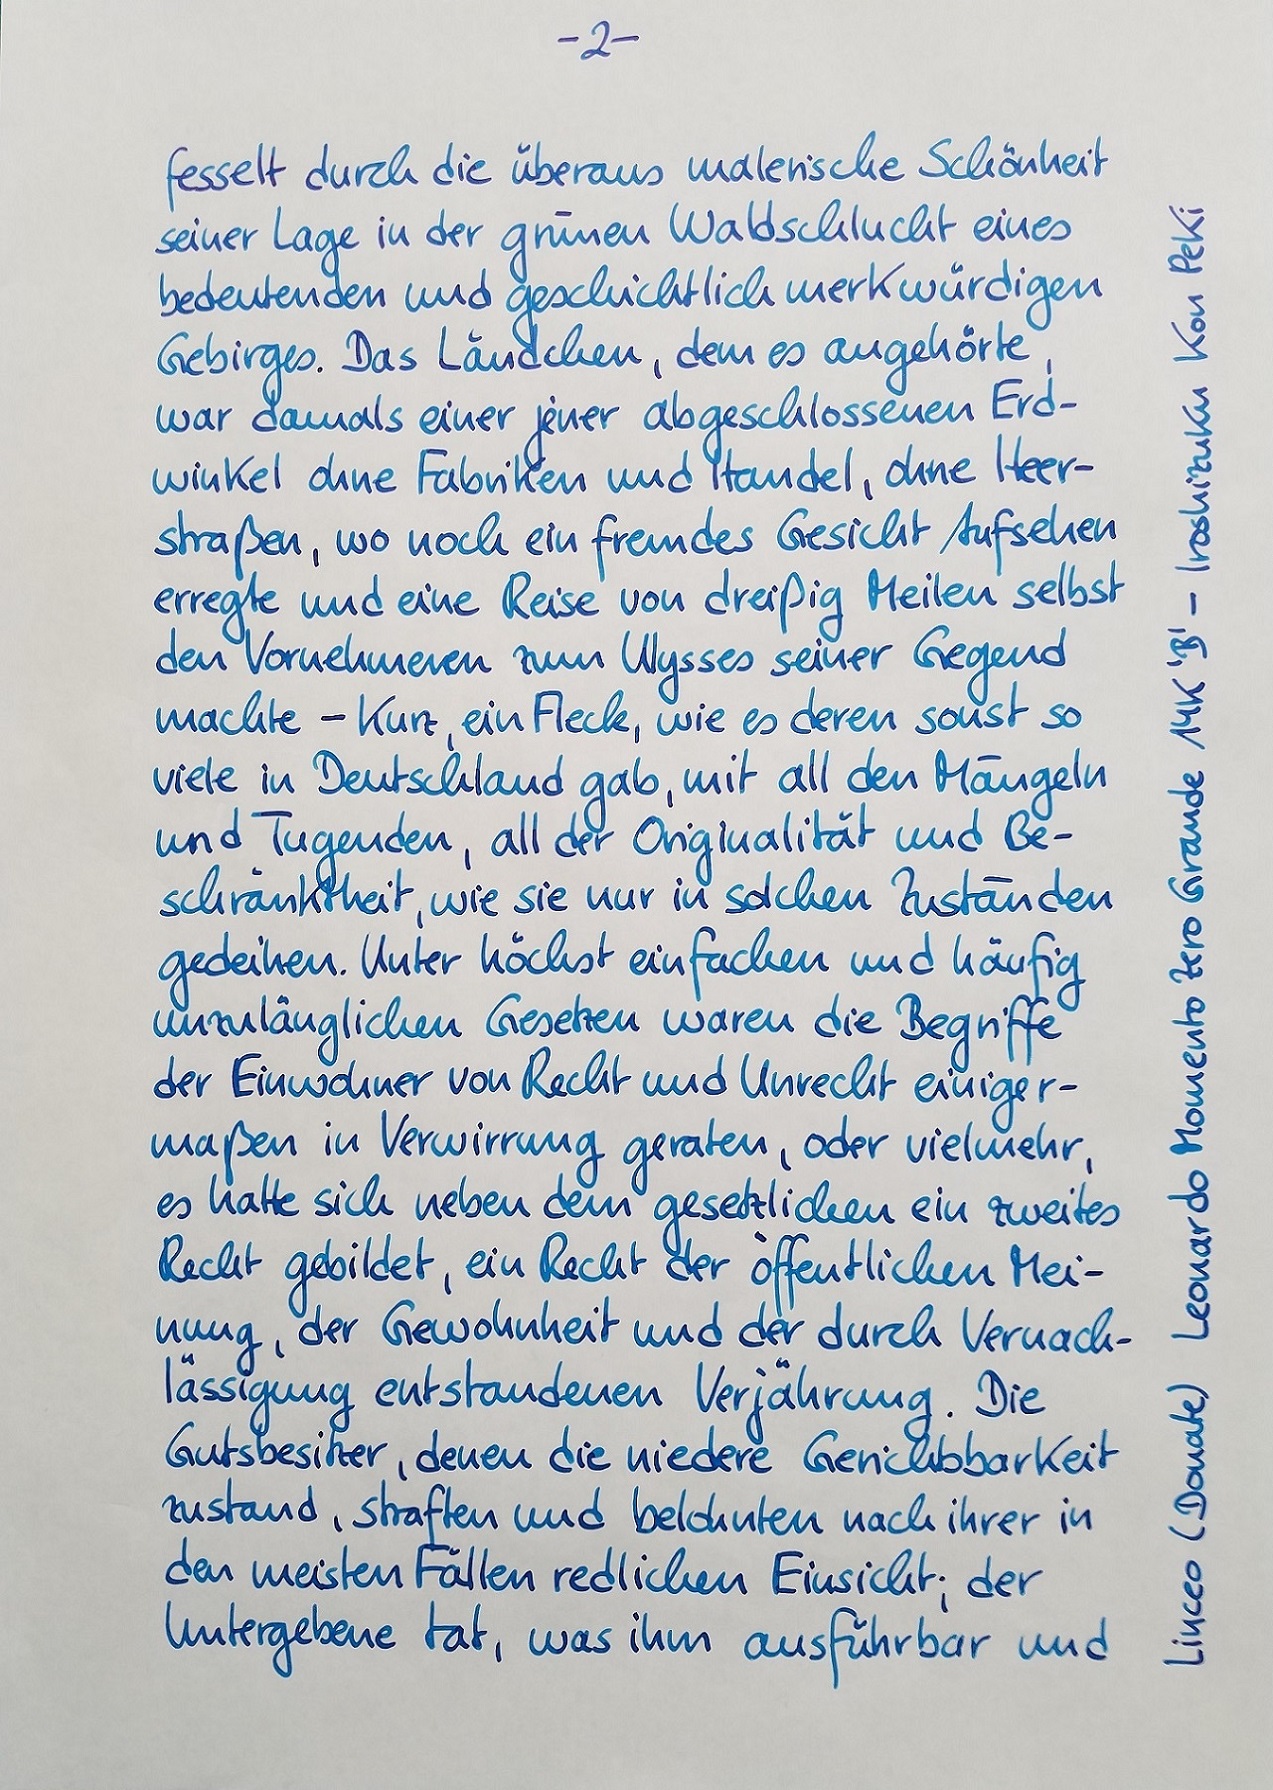 -2-
fesselt durch die überaus malerische Schönheit
seiner Lage in der grünen Waldschlucht eines
bedeutenden und geschichtlich merkwürdigen
Gebirges. Das Ländchen, dem es angehörte,
war damals einer jener abgeschlossenen Erd-
winkel ohne Fabriken und Handel, ohne Heer-
straßen, wo noch ein fremdes Gesicht Aufsehen
erregte und eine Reise von dreißig Meilen selbst
den Vornehmeren zum Ulysses seiner Gegend
machte – kurz, ein Fleck, wie es deren sonst so
viele in Deutschland gab, mit all den Mängeln
und Tugenden, all der Originalität und Be-
schränktheit, wie sie nur in solchen Zuständen
gedeihen. Unter höchst einfachen und häufig
unzulänglichen Gesetzen waren die Begriffe
der Einwohner von Recht und Unrecht einiger-
maßen in Verwirrung geraten, oder vielmehr,
es hatte sich neben dem gesetzlichen ein zweites
Recht gebildet, ein Recht der öffentlichen Mei-
nung, der Gewohnheit und der durch Vernach-
lässigung entstandenen Verjährung. Die
Gutsbesitzer, denen die niedere Gerichtsbarkeit
zustand, straften und belohnten nach ihrer in
den meisten Fällen redlichen Einsicht; der
Untergebene tat, was ihm ausführbar und
(Donate) Leonardo Momento Zero Grande 14K 'B' – Iroshizuku Kon Peki